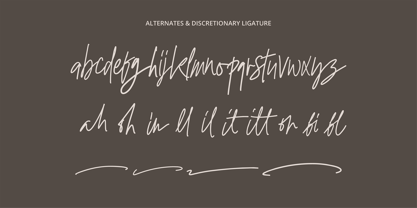 ALTERNATES & DISCRETIONARY LIGATURE
abcdefghijklmnopqrstuvwxyz
ah oh in ll il it itt on fi fl